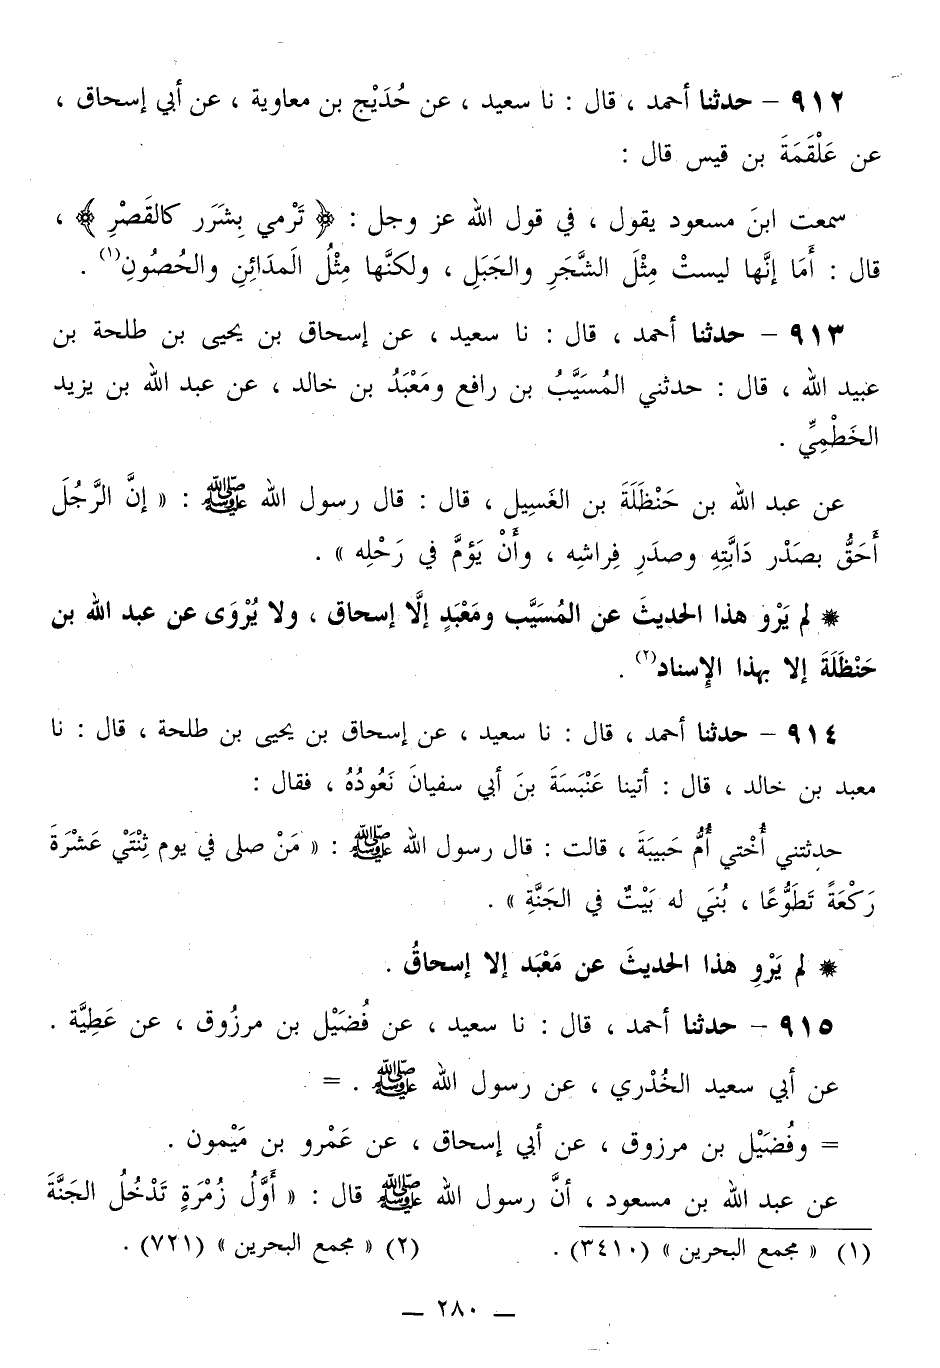 ٩١٢ – حدثنا أحمد ، قال : نا سعيد ، عن حُدَيْج بن معاوية ، عن أبي إسحاق ،
عن عَلْقَمَةَ بن قيس قال :
سمعت ابنَ مسعود يقول ، في قول الله عز وجل : ﴿ تَرْمي بِشَرَر كالقَصْرِ ﴾ ،
قال : أَمَا إنَّها ليستْ مِثْلَ الشَّجَرِ والجَبَلِ ، ولكنَّها مِثْلُ المدَائِنِ والحُصُونِ(١) .
٩١٣ – حدثنا أحمد ، قال : نا سعيد ، عن إسحاق بن يحيى بن طلحة بن
عبيد الله ، قال : حدثني المُسَيَّبُ بن رافع ومَعْبَدُ بن خالد ، عن عبد الله بن يزيد
الخَطْمِيِّ .
عن عبد الله بن حَنْظَلَةَ بن الغَسِيل ، قال : قال رسول الله ﷺ : « إنَّ الرَّجُلَ
أَحَقُّ بصَدْر دَابَّتِهِ وصدَرِ فِراشِه ، وأَنْ يَؤمَّ في رَحْلِه » .
* لم يَرْوِ هذا الحديثَ عن المُسَيَّب ومَعْبَدٍ إلَّا إسحاق ، ولا يُرْوَى عن عبد الله بن
حَنْظَلَةَ إلا بهذا الإِسناد(٢) .
٩١٤ – حدثنا أحمد ، قال : نا سعيد ، عن إسحاق بن يحيى بن طلحة ، قال : نا
معبد بن خالد ، قال : أتينا عَنْبَسَةَ بنَ أبي سفيانَ نَعُودُهُ ، فقال :
حدثتني أُخْتي أُمُّ حَبيبَةَ ، قالت : قال رسول الله ﷺ : « مَنْ صلى في يوم ثِنْتَيْ عَشْرَةَ
رَكْعَةً تَطَوُّعًا ، بُنيَ له بَيْتٌ في الجَنَّةِ » .
* لم يَرْوِ هذا الحديثَ عن مَعْبَد إلا إسحاقُ .
٩١٥ – حدثنا أحمد ، قال : نا سعيد ، عن فُضَيْل بن مرزُوق ، عن عَطِيَّة .
عن أبي سعيد الخُدْري ، عن رسول الله ﷺ . =
= وفُضَيْل بن مرزوق ، عن أبي إسحاق ، عن عَمْرو بن مَيْمون .
عن عبد الله بن مسعود ، أنَّ رسول الله ﷺ قال : « أَوَّلُ زُمْرَةٍ تَدْخُلُ الجَنَّةَ
(١) « مجمع البحرين » (٣٤١٠) . (٢) « مجمع البحرين » (٧٢١) .
— ٢٨٠ —